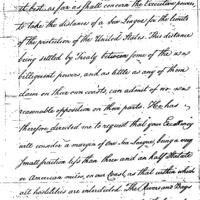 it best, as far as shall concern the Executive power,
to take the distance of a Sea League for the limits
of the protection of the United States. This distance
being settled by Treaty between some of the
belligerent powers, and as little as any of them
claim on their own coasts, can admit of no
reasonable opposition on their parts. He has
therefore directed me to request that your Excellency
will consider a margin of one Sea League, being a very
small fraction less than three and an half statute
or American miles, on our Coast, as that within which
all hostilities are interdicted. The Rivers and Bays